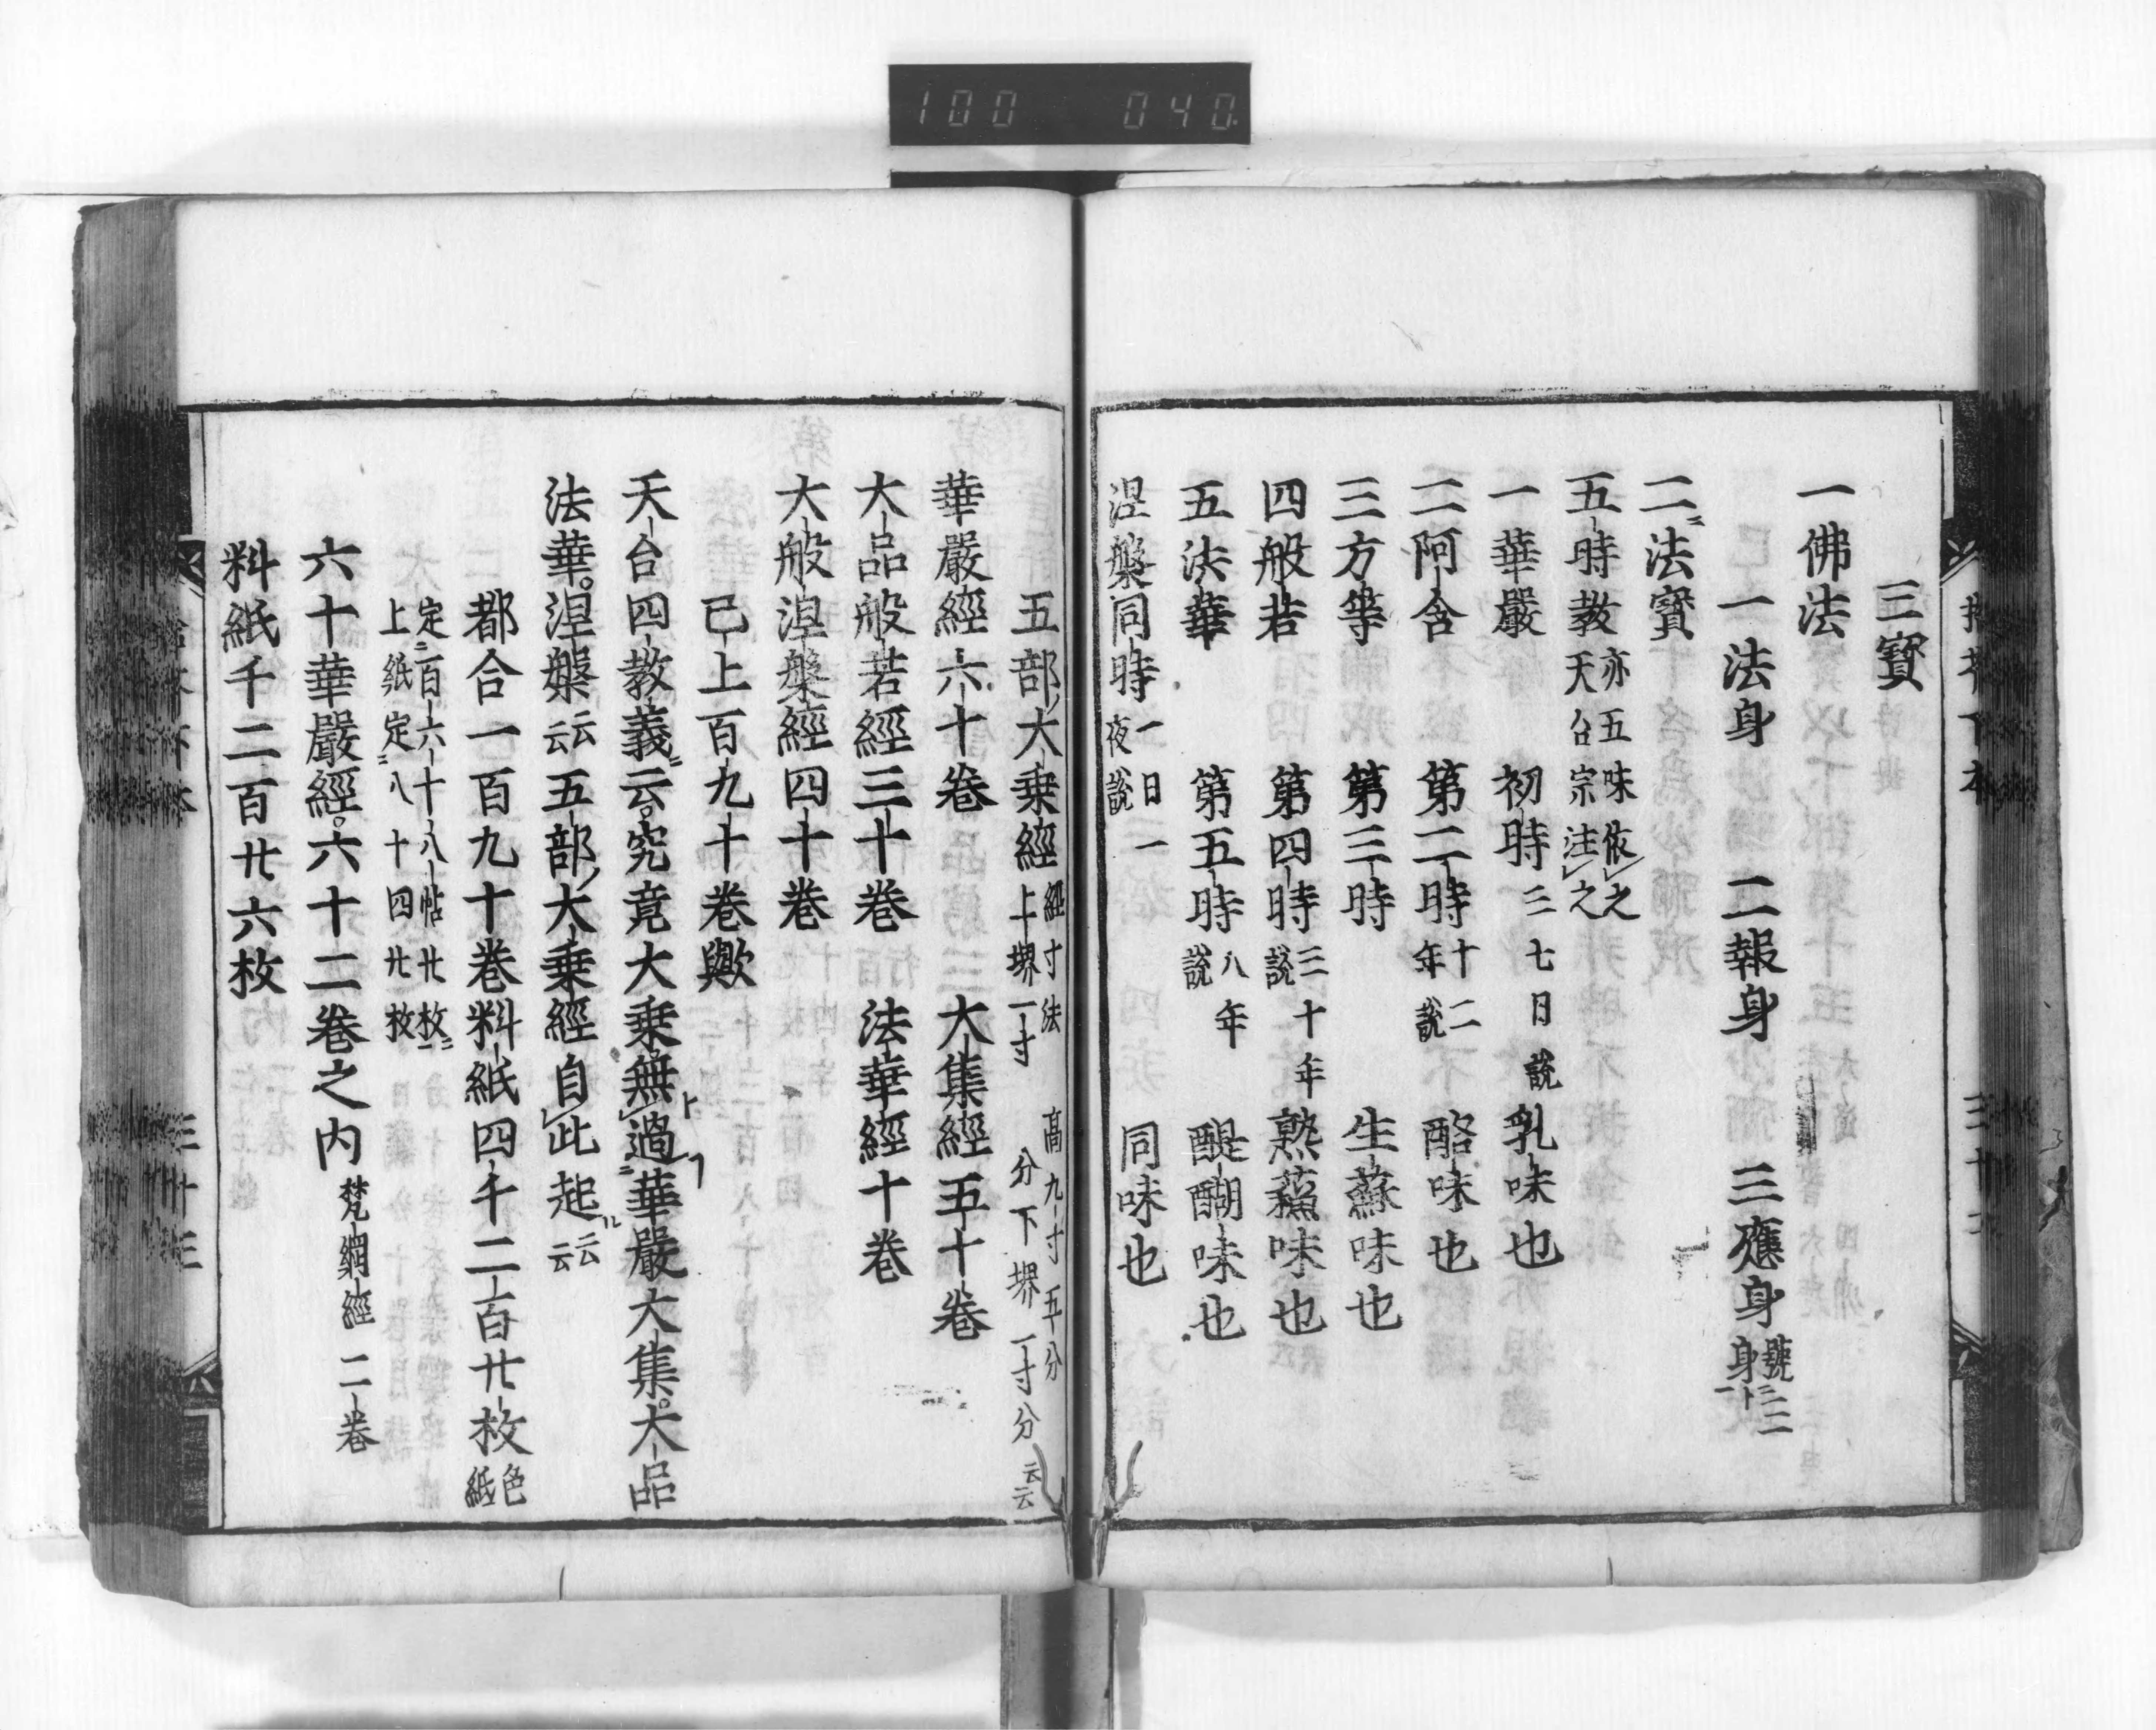 100 040
三寶
一佛法
一法身 二報身 三應身 號三二身一十
二法寶
五時教 亦五味依之天台宗注之
一華嚴 初時 三七日說 乳味也
二阿含 第二時 十二年說 酪味也
三方等 第三時 生蘇味也
四般若 第四時 三十年說 熟蘇味也
五法華 第五時 八年說 醍醐味也
涅槃同時 一日一夜說 同味也
五部大乗經 經寸法 高九寸五分 上堺一寸分 下堺一寸分云云
華嚴經六十卷 大集經五十卷
大品般若經三十卷 法華經十卷
大般涅槃經四十卷
已上百九十卷歟
天台四教義云究竟大乗無過華嚴大集大品
法華涅槃云云五部大乗經自此起云云
都合一百九十卷料紙四千二百廿枚 色紙
定二百六十八帖廿枚
上紙定八十四廿枚
六十華嚴經六十二卷之内 梵網經二卷
料紙千二百廿六枚
三十三